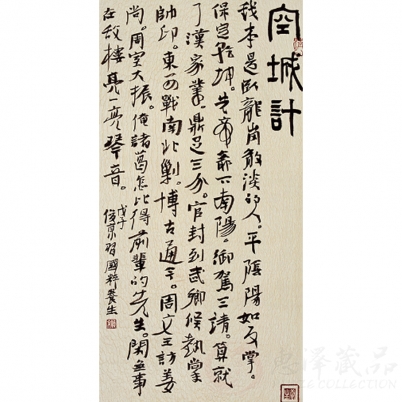 空城計
我本是臥龍崗散淡的人。平陰陽如反掌。
保定乾坤。先帝爺下南陽。御駕三請。算就
了漢家業。鼎足三分。官封到武鄉侯執掌
帥印。東西戰南北剿。博古通今。周文王訪姜
尚。周室大振。俺諸葛怎比得前輩的先生。閑無事
在敵樓亮一亮琴音。
戊子
習國粹養生
藏品
COLLECTION